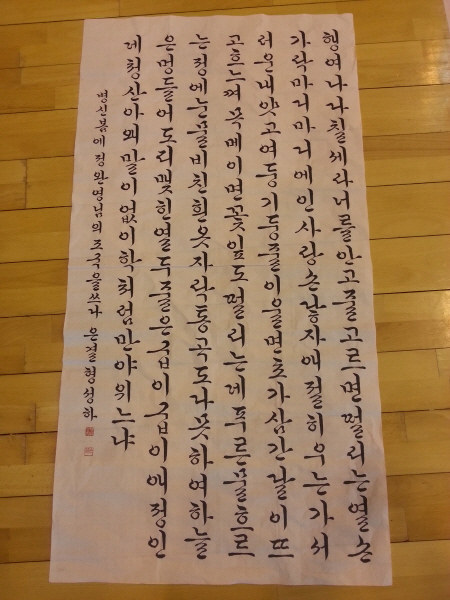 행여나다칠세라너를안고줄고르면떨리는열손
가락마디마디에인사랑손닿자애절히우는가서
러운내얏고여둥기둥줄이울면초가삼간달이뜨
고흐느껴목메이면꽃잎도떨리는데푸른물흐르
는정에눈물비친흰옷자락통곡도다못하여하늘
은멍들어도피맺힌열두줄은굽이굽이애정인
데청산아왜말이없이학처럼만야위느냐
병신봄에 정완영님의 조국을쓰다 은결 형성하